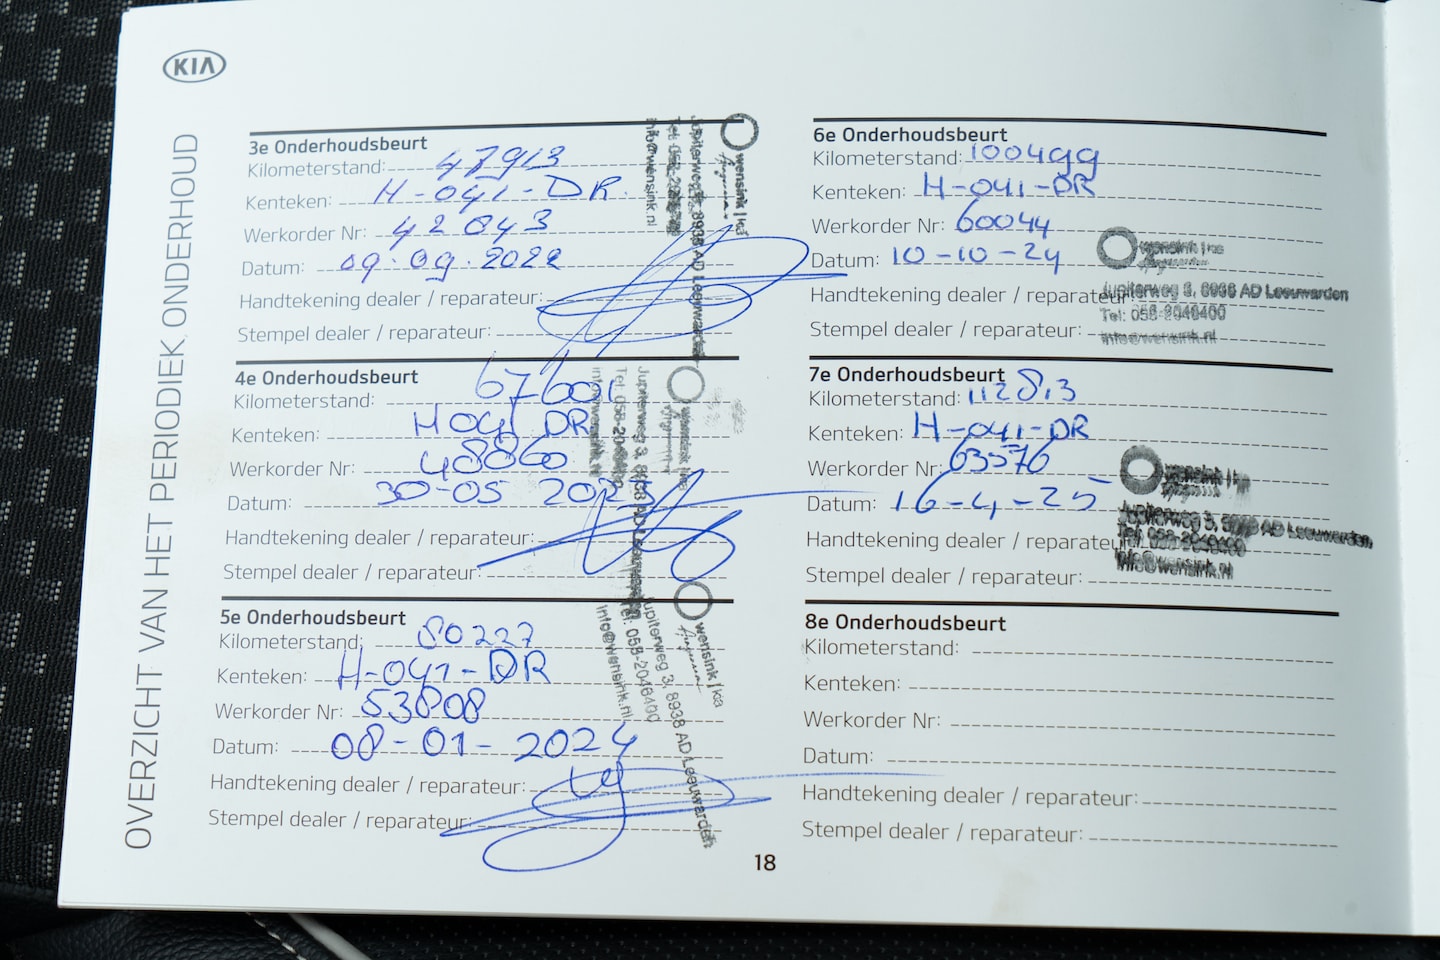 KIA
OVERZICHT VAN HET PERIODIEK ONDERHOUD
3e Onderhoudsbeurt
Kilometerstand: 47913
Kenteken: H-041-DR
Werkorder Nr: 42843
Datum: 09-09-2022
Handtekening dealer / reparateur:
Stempel dealer / reparateur:
wensink | kia
Jupiterweg 3, 8938 AD Leeuwarden
info@wensink.nl
4e Onderhoudsbeurt
Kilometerstand: 67601
Kenteken: H 041 DR
Werkorder Nr: 48860
Datum: 30-05 2023
Handtekening dealer / reparateur:
Stempel dealer / reparateur:
wensink | kia
Jupiterweg 3, 8938 AD Leeuwarden
5e Onderhoudsbeurt
Kilometerstand: 80227
Kenteken: H-041-DR
Werkorder Nr: 53808
Datum: 08-01-2024
Handtekening dealer / reparateur:
Stempel dealer / reparateur:
wensink | kia
Jupiterweg 3, 8938 AD Leeuwarden
Tel: 058-2046400
info@wensink.nl
6e Onderhoudsbeurt
Kilometerstand: 100499
Kenteken: H-041-DR
Werkorder Nr: 60044
Datum: 10-10-24
Handtekening dealer / reparateur:
Stempel dealer / reparateur:
wensink | kia
Jupiterweg 3, 8938 AD Leeuwarden
Tel: 058-2046400
info@wensink.nl
7e Onderhoudsbeurt
Kilometerstand: 112813
Kenteken: H-041-DR
Werkorder Nr: 63576
Datum: 16-4-25
Handtekening dealer / reparateur:
Stempel dealer / reparateur:
wensink | kia
Jupiterweg 3, 8938 AD Leeuwarden
Tel: 058-2046400
info@wensink.nl
8e Onderhoudsbeurt
Kilometerstand:
Kenteken:
Werkorder Nr:
Datum:
Handtekening dealer / reparateur:
Stempel dealer / reparateur:
18